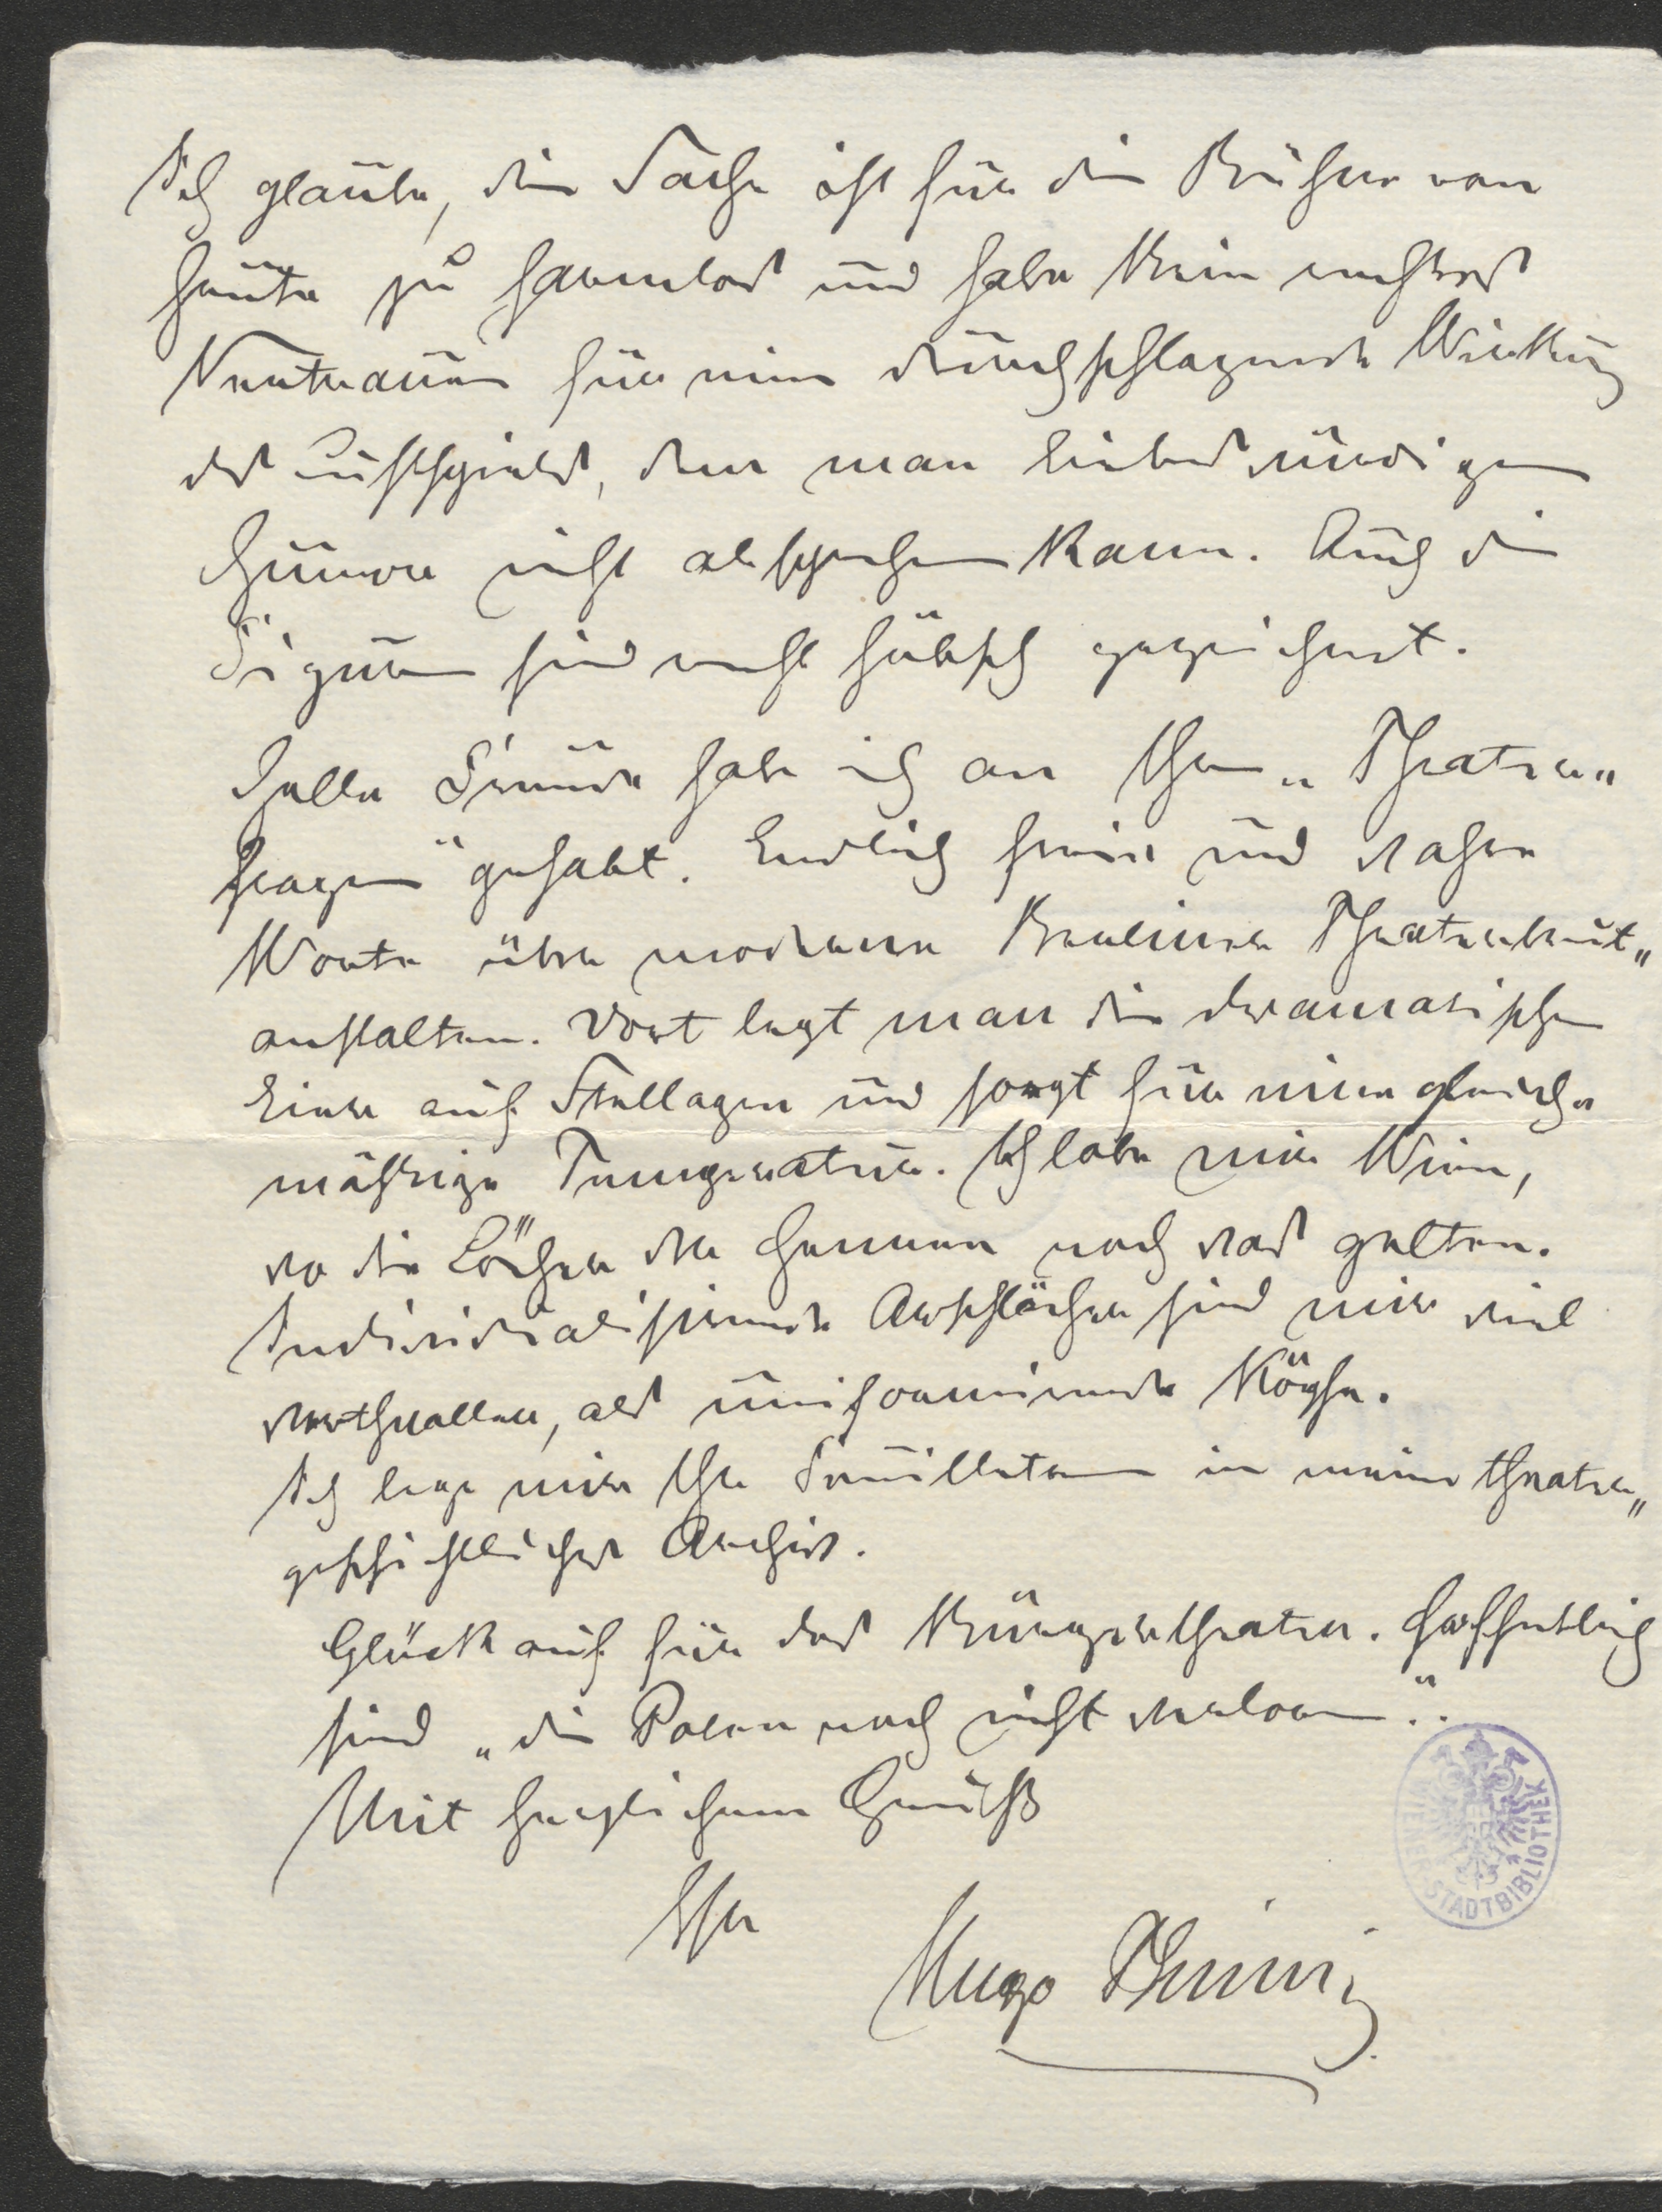 Ich glaube, die Sache ist für die Bühne von
heute zu harmlos und habe kein rechtes
Vertrauen für eine durchschlagende Wirkung
des Lustspiels, dem man liebenswürdigen
Humor nicht absprechen kann. Auch die
Figuren sind recht hübsch gezeichnet.
Helle Freude habe ich an Ihren „Theater„
fragen" gehabt. Endlich freie und wahre
Worte über moderne Berliner Theaterbrut„
anstalten. Dort legt man die dramatischen
Eier auf Stellagen und sorgt für eine gleich„
mäßige Temperatur. Ich lobe mir Wien,
wo die Löcher der Hennen noch was gelten.
Individualisirende Arschlöcher sind mir viel
werthvoller, als uniformirende Köpfe.
Ich lege mir Ihr Feuilleton in mein theater„
geschichtliches Archiv.
Glück auf für das Bürgertheater. Hoffentlich
sind „die Polen noch nicht verloren".
Mit herzlichem Gruß
Ihr
Hugo Thimig
WIENER STADTBIBLIOTHEK